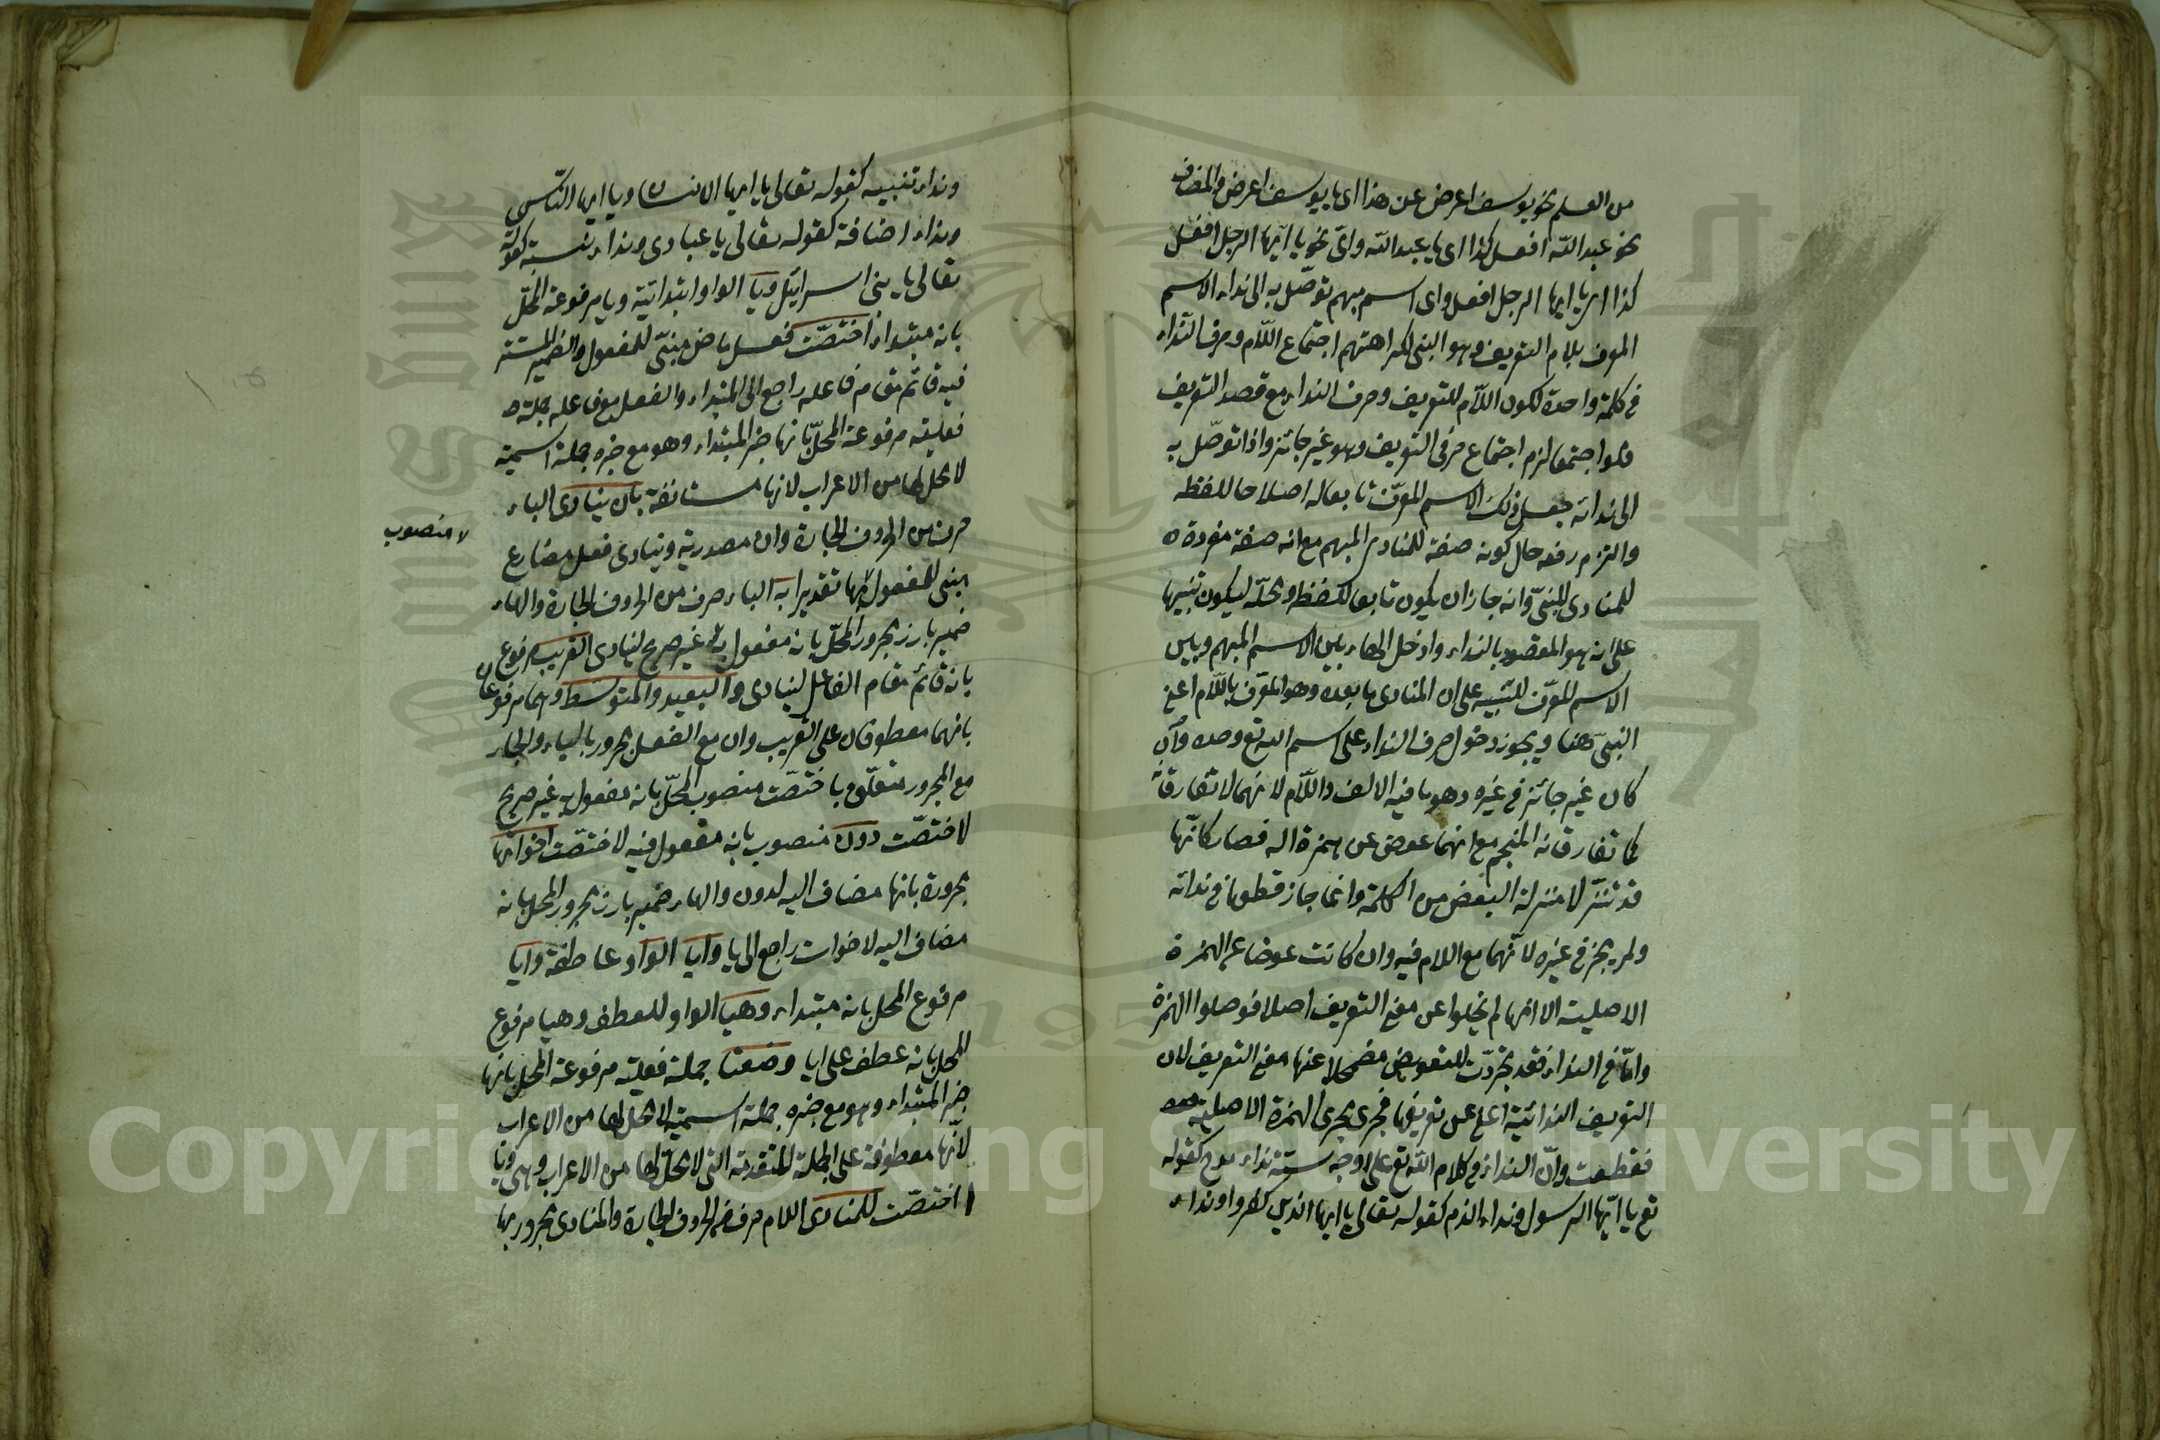 من العلم نحو يوسف اعرض عن هذا اى يا يوسف اعرض والمضاف
نحو عبد الله افعل كذا اى يا عبد الله واىّ نحو يا ايّها الرجل افعل
كذا اى يا ايها الرجل افعل واى اسم مبهم توصّل به الى نداء الاسم
المعرف بلام التعريف وهو المبنى لكراهتهم اجتماع اللّام وحرف النّداء
فى كلمة واحدة لكون اللّام للتعريف وحرف النداء مع قصد التعريف
فلو اجتمعا لزم اجتماع حرفى التعريف وهو غير جائز واذا توصّل به
الى ندائه جعل ذلك الاسم المعرّف تابعا له اصلاحا للفظه
والتزم رفعه حال كونه صفة للمنادى المبهم مع انه صفة مفردة
للمنادى المبنىّ وانه جاز ان يكون تابعا للفظه ومحلّه ليكون تنبيها
على انه هو المقصود بالنداء وادخل الهاء بين الاسم المبهم وبين
الاسم المعرّف للتنبيه على ان المنادى ما بعده وهو المعرّف باللّام اعنى
النبىّ هنا ويجوز دخول حرف النداء على اسم الله تع وحده وان
كان غير جائز فى غيره وهو ما فيه الالف واللّام لانهما لا تفارقانه
كما تفارقانه النجم مع انهما عوض عن همزة اله فصار كانّها
قد تنزّلا منزلة البعض من الكلمة وانما جاز قطعها فى ندائه
ولم يجز فى غيره لانّهما مع اللام فيه وان كانت عوضا عن الهمزة
الاصلية الا انها لم يخلوا عن معنى التعريف اصلا فوصلوا الهمزة
وامّا فى النداء فقد تجرّدت للتعويض مضمحلا عنها معنى التعريف لان
التعريف الندائية اغنى عن تعريفها فجرى مجرى الهمزة الاصلية
فقطعت وانّ النداء فى كلام الله تع على اوجه ستة نداء مدح كقوله
تع يا ايّها الرسول ونداء الذم كقوله تعالى يا ايها الذين كفروا ونداء
ونداء تنبيه كقوله تعالى يا ايها الانسان ويا ايها النّاس
ونداء اضافة كقوله تعالى يا عبادى ونداء نسبة كقوله
تعالى يا بنى اسرائيل ويا الواو ابتدائية ويا مرفوعة المحلّ
بانه مبتداء اختصّت فعل ماض مبنىّ للمفعول والضمير المستتر
فيه قائم مقام فاعله راجع الى المبتداء والفعل مع فاعله جملة
فعلية مرفوعة المحلّ بانها خبر المبتداء وهو مع خبره جملة اسمية
لا محل لها من الاعراب لانها مستانفة بان ينادى الباء
حرف من الحروف الجارة وان مصدرية وينادى فعل مضارع
لا منصوب
مبنى للمفعول بها تقديرا به الباء حرف من الحروف الجارة والهاء
ضمير بارز مجرور المحلّ بانه مفعول به غير صريح لينادى القريب مرفوع
بانه قائم مقام الفاعل لينادى والبعيد والمتوسّط وهما مرفوعان
بانهما معطوفان على القريب وان مع الفعل مجرور بالباء والجار
مع المجرور متعلّق باختصّت منصوب المحلّ بانه مفعول به غير صريح
لاختصّت دون منصوب بانه مفعول فيه لاختصّت اخواتها
مجرورة بانها مضاف اليه لدون والهاء ضمير بارز مجرور المحل بانه
مضاف اليه لاخوات راجع الى يا وايا الواو عاطفة وايا
مرفوع المحل بانه مبتداء وهيا الواو للعطف وهيا مرفوع
المحل بانه عطف على ايا وضعتا جملة فعلية مرفوعة المحل بانها
خبر المبتداء وهو مع خبره جملة اسمية لا محلّ لها من الاعراب
لانّها معطوفة على الجملة المتقدمة التى لا محلّ لها من الاعراب وهى ويا
اختصّت للمنادى اللام حرف من الحروف الجارة والمنادى مجرور بها
Copyright © King Saud University
1957